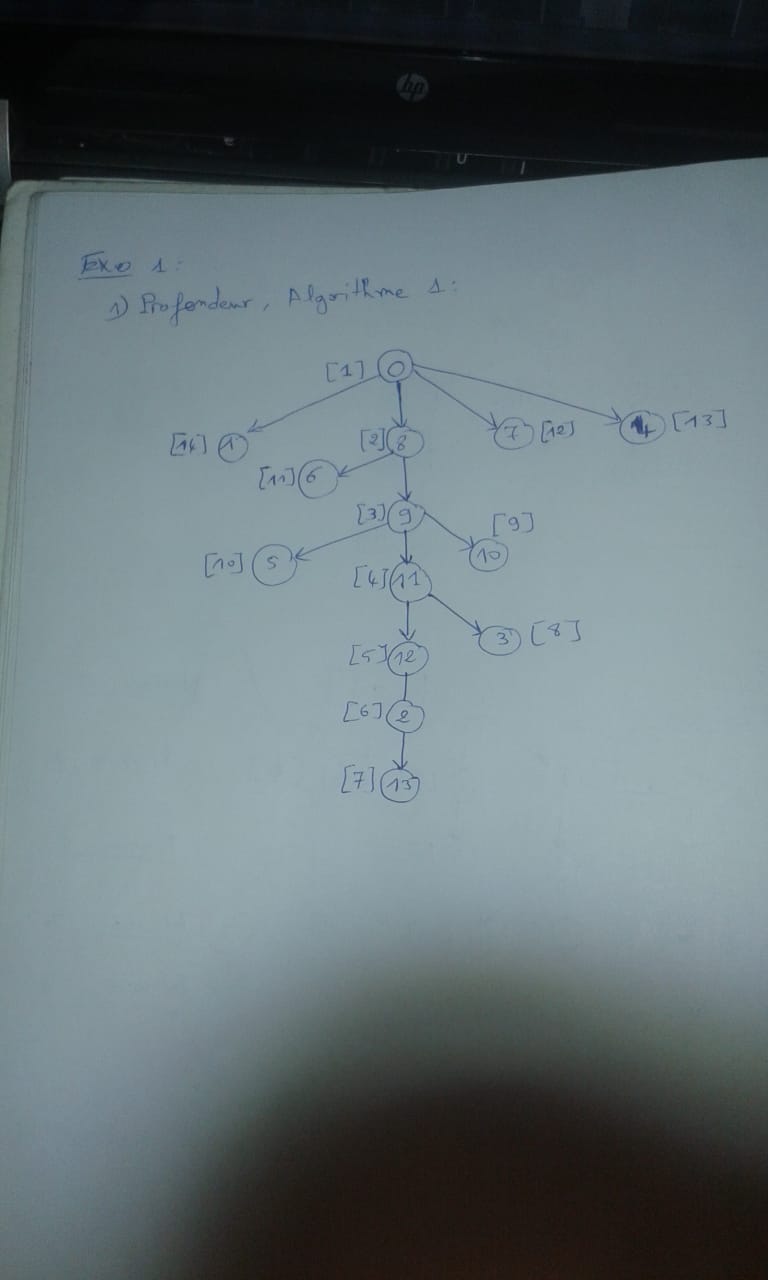 hp
Exo 1:
1) Profondeur, Algorithme 1:
[1] 0
[14] 1 [2] 8 7 [12] 4 [13]
[11] 6
[3] 9 [9]
[10] 5 10
[4] 11
3 [8]
[5] 12
[6] 2
[7] 13